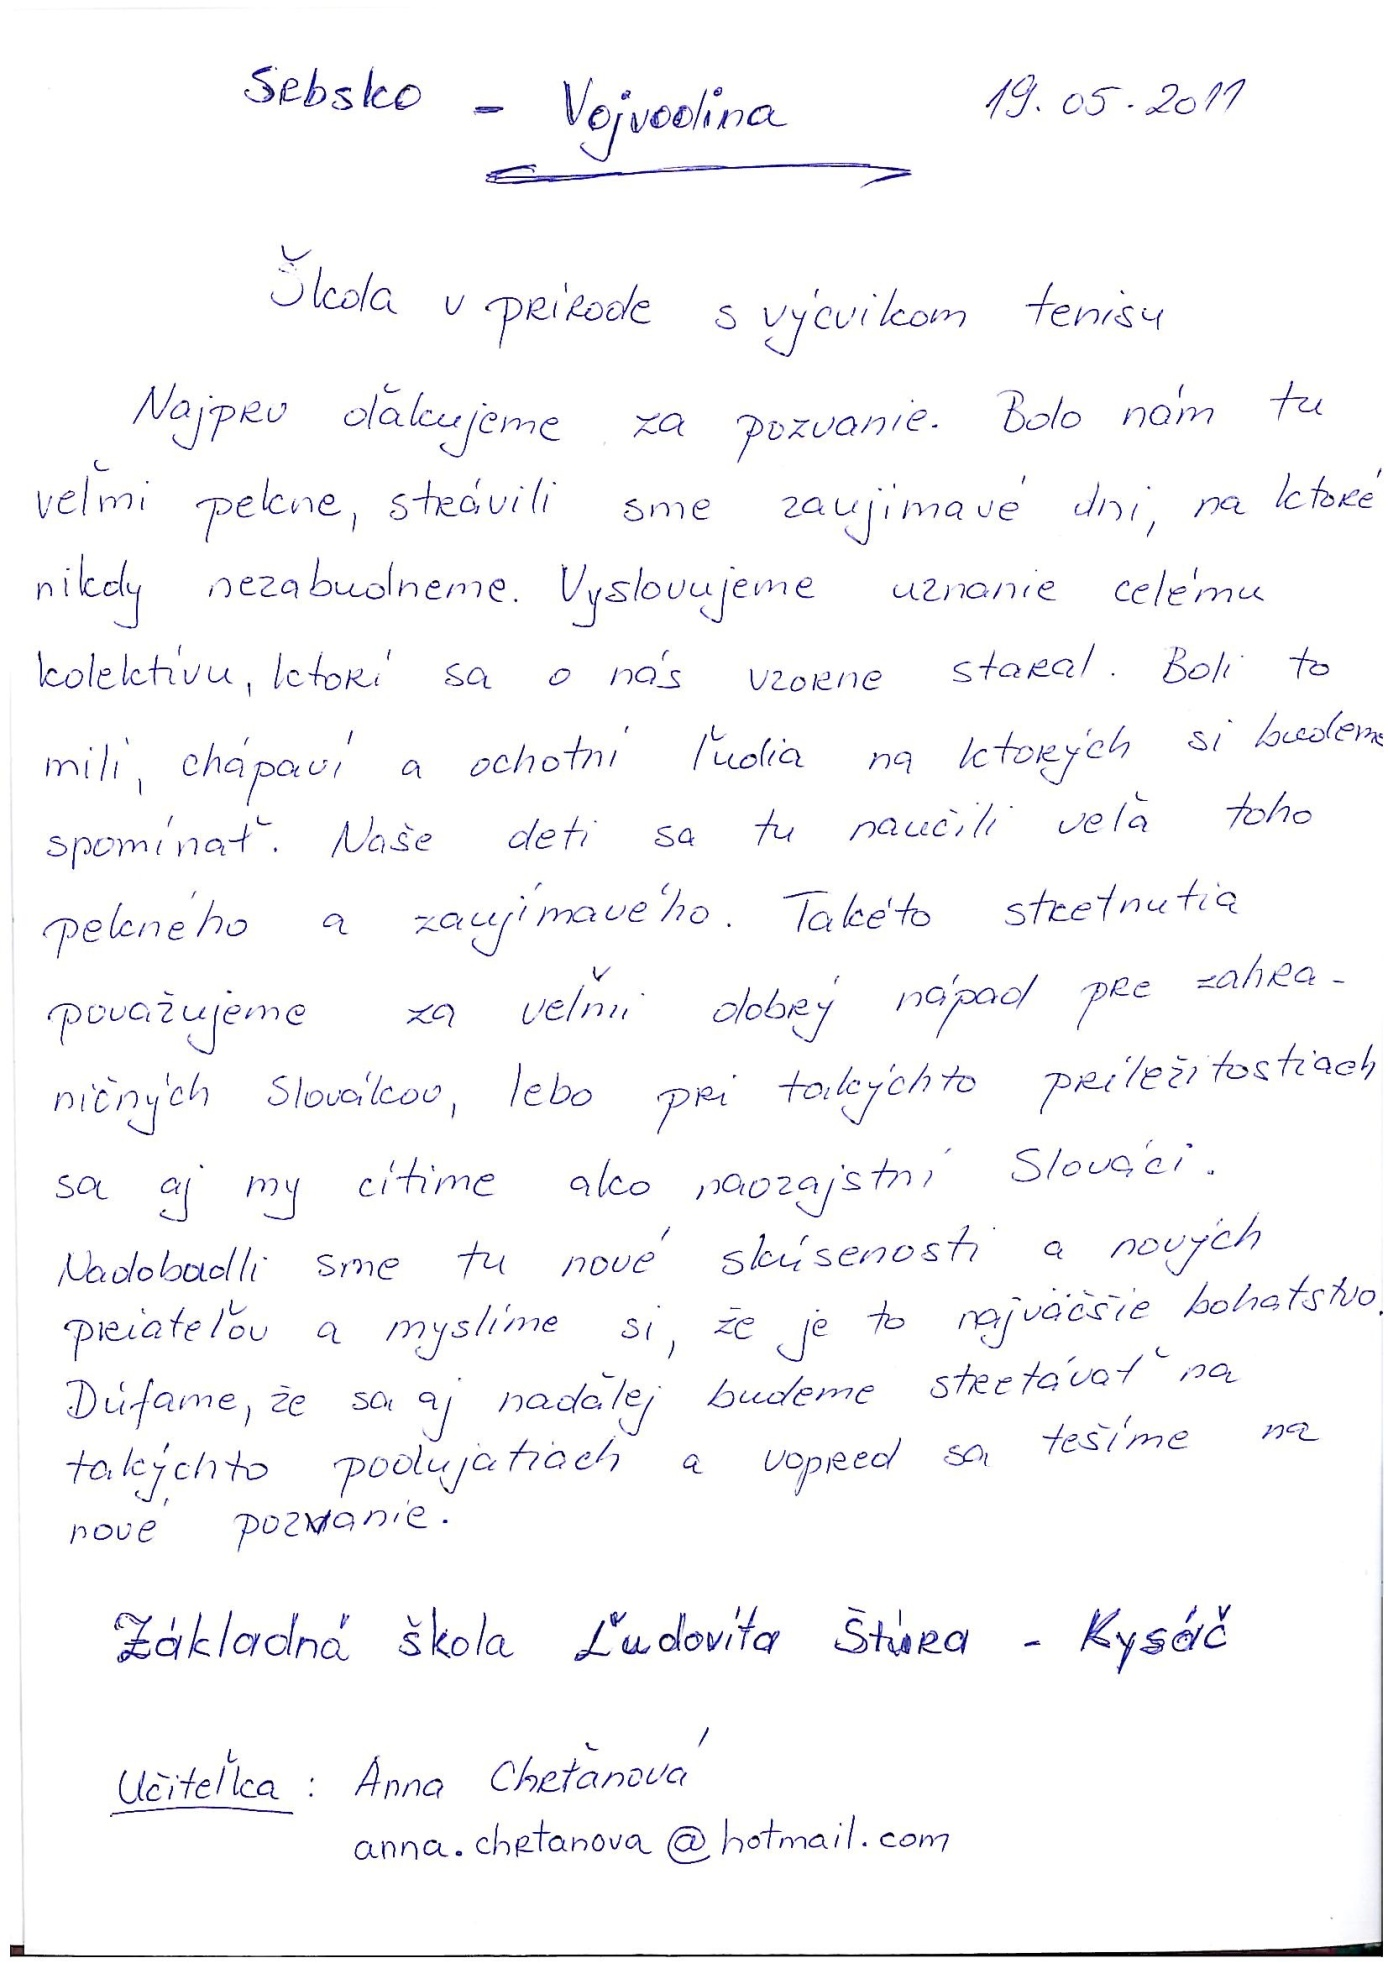 Sebsko - Vojvodina 19.05.2011
Škola v prírode s výcvikom tenisu
Najprv ďakujeme za pozvanie. Bolo nám tu
veľmi pekne, strávili sme zaujímavé dni, na ktoré
nikdy nezabudneme. Vyslovujeme uznanie celému
kolektívu, ktorí sa o nás vzorne staral. Boli to
milí, chápaví a ochotní ľudia na ktorých si budeme
spomínať. Naše deti sa tu naučili veľa toho
pekného a zaujímavého. Takéto stretnutia
považujeme za veľmi dobrý nápad pre zahra-
ničných Slovákov, lebo pri takýchto príležitostiach
sa aj my cítime ako naozajstní Slováci.
Nadobudli sme tu nové skúsenosti a nových
priateľov a myslíme si, že je to najväčšie bohatstvo.
Dúfame, že sa aj naďalej budeme stretávať na
takýchto podujatiach a vopred sa tešíme na
nové pozvanie.
Základná škola Ľudovíta Štúra - Kysáč
Učiteľka: Anna Chrťanová
anna.chrtanova@hotmail.com